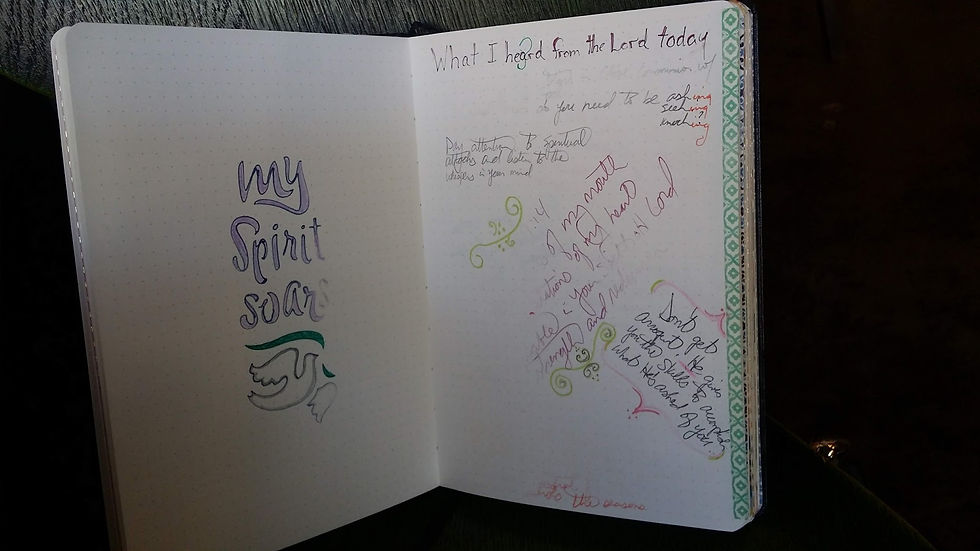 my
Spirit
soars
What I heard from the Lord today
Do you need to be asking
seeking
knocking?
Pay attention to spiritual
attacks and listen to the
whispers in your mind
:14
of my mouth
of my heart
in your
Lord
strength and
Don't get
arrogant! He gives
you the skills to accomplish
what He's asked of you.
the seasons